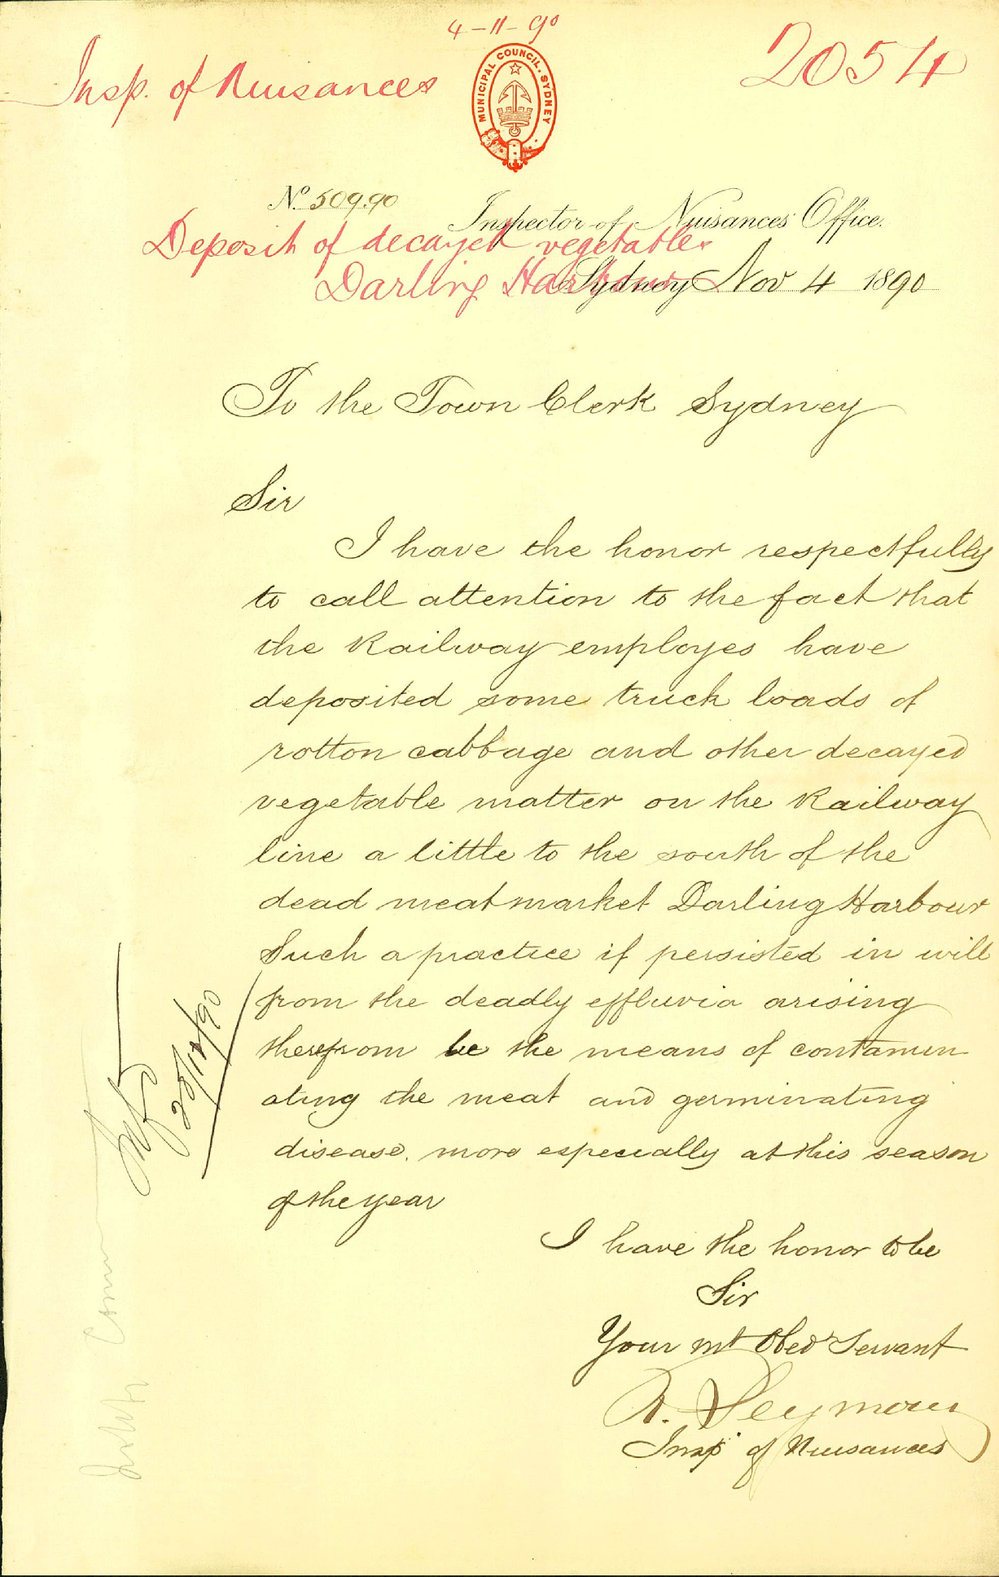 4-11-90
Insp. of Nuisances
2054
MUNICIPAL COUNCIL. SYDNEY
No. 509.90
Inspector of Nuisances Office.
Deposit of decayed vegetables
Darling Harbour
Sydney Nov 4 1890
To the Town Clerk Sydney
Sir
I have the honor respectfully
to call attention to the fact that
the Railway employes have
deposited some truck loads of
rotton cabbage and other decayed
vegetable matter on the Railway
line a little to the south of the
dead meat market Darling Harbour
Such a practice if persisted in will
from the deadly effluvia arising
therefrom be the means of contamin
ating the meat and germinating
disease. more especially at this season
of the year
I have the honor to be
Sir
Your mt Obed Servant
R. Seymour
Insp of Nuisances
/12/90